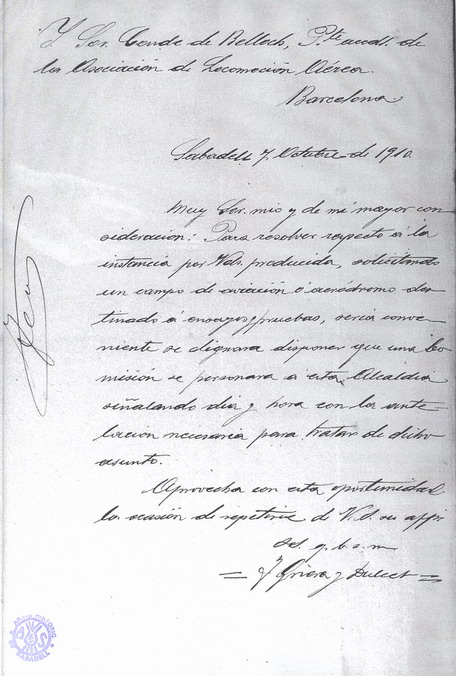 Y Sor. Conde de Belloch, Pte. acctl. de
la Asociación de Locomoción Aérea.
Barcelona
Sabadell 7 Octubre de 1910
Muy Sor. mio y de mi mayor con-
sideración: Para resolver respecto á la
instancia por Vds. producida, solicitando
un campo de aviación ó aeródromo des-
tinado á ensayos y pruebas, seria conve-
niente se dignara disponer que una Co-
misión se personara a esta Alcaldia
señalando dia y hora con la ante-
lación necesaria para tratar de dicho
asunto.
Aprovecha con esta oportunidad
la ocasión de repetirse de V.d. su affº.
Sd. q. b. s. m
Griera y Dulcet
ARXIU HISTORIC
DE SABADELL
AHS